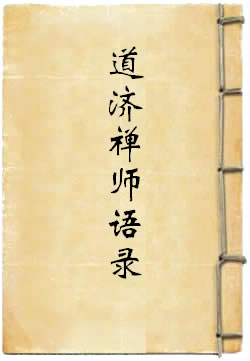 道济禅师语录